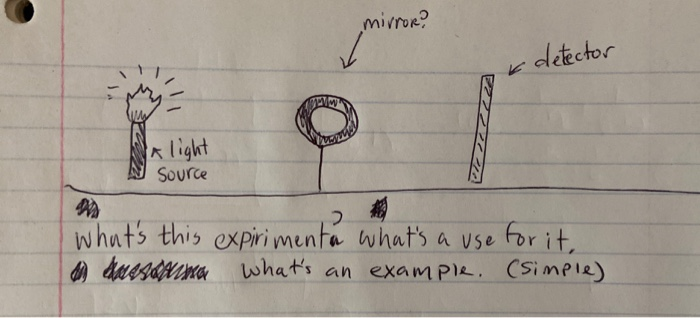 mirror?
detector
light
source
What's this expirimenta? what's a use for it,
what's an example. (simple)